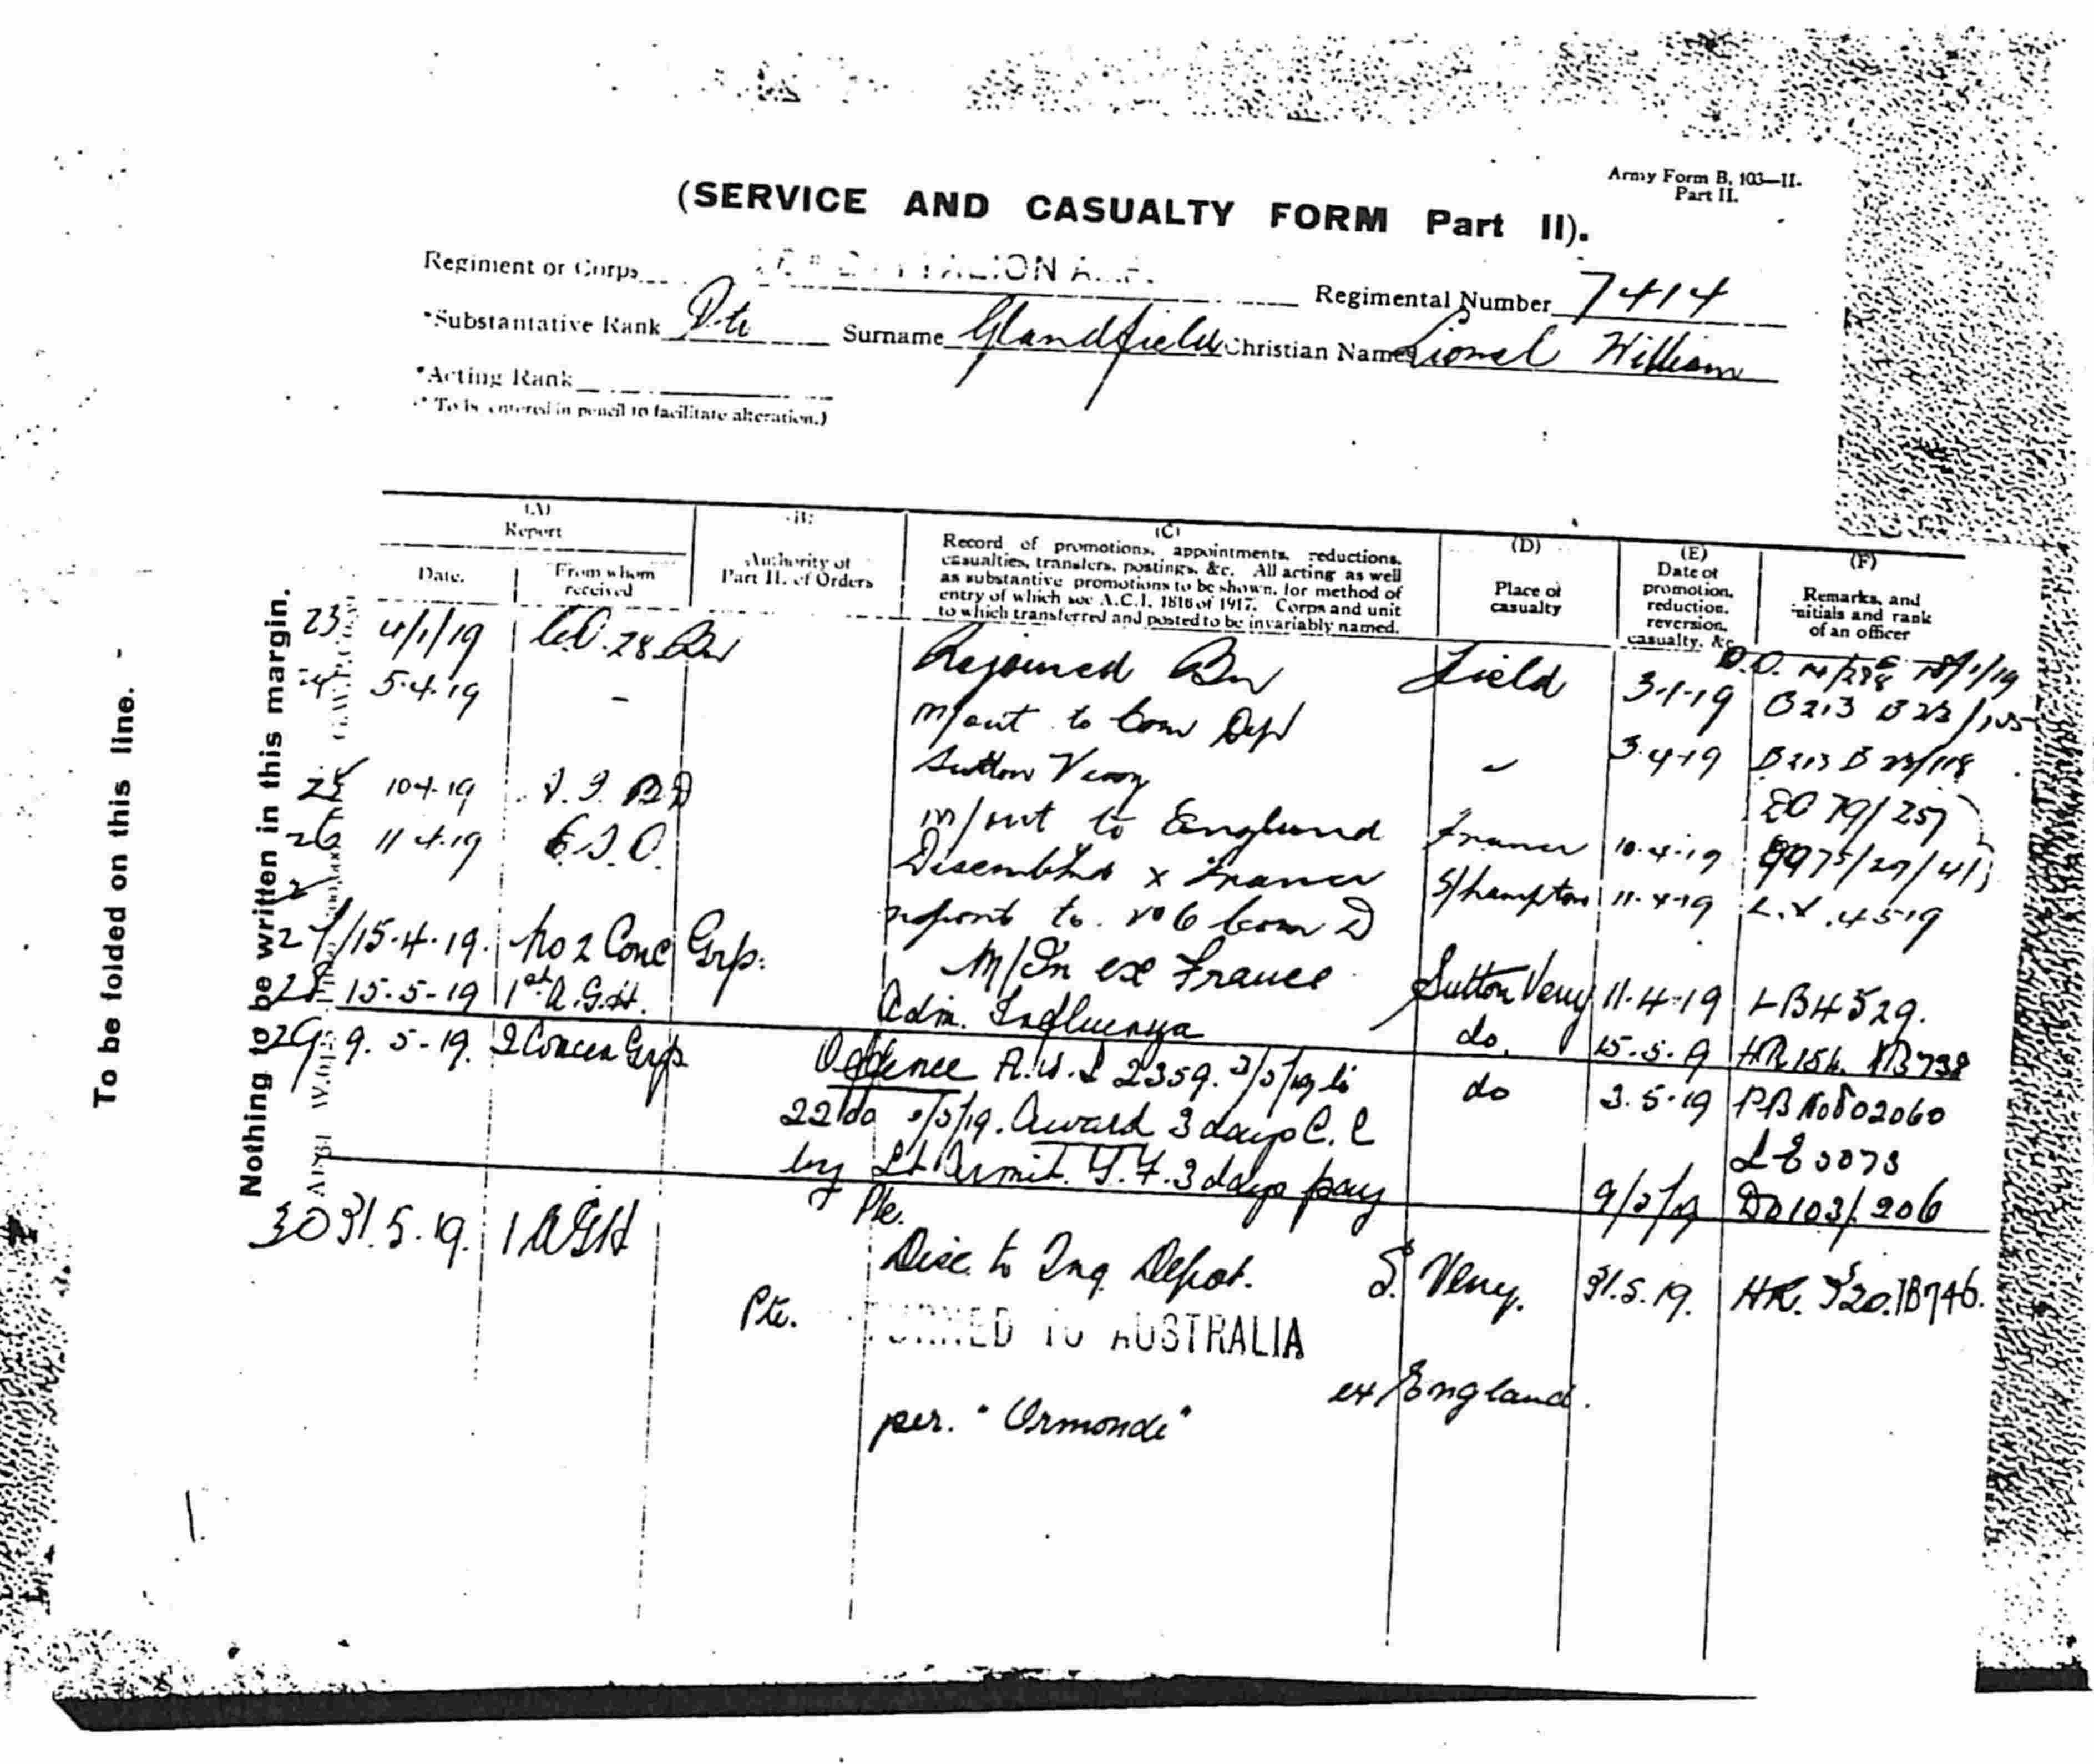 Army Form B. 103—II.
Part II.
(SERVICE AND CASUALTY FORM Part II).
Regiment or Corps
Regimental Number 7414
*Substantative Rank Pte Surname Glandfield Christian Names Lionel William
*Acting Rank
* To be entered in pencil to facilitate alteration.)
To be folded on this line.
Nothing to be written in this margin.
(A)
Report
Date.
From whom received
(B)
Authority of Part II. of Orders
(C)
Record of promotions, appointments, reductions,
casualties, transfers, postings, &c. All acting as well
as substantive promotions to be shown, for method of
entry of which see A.C.I. 1816 of 1917. Corps and unit
to which transferred and posted to be invariably named.
(D)
Place of casualty
(E)
Date of promotion, reduction, reversion, casualty, &c.
(F)
Remarks, and initials and rank of an officer
23 4/1/19 C.O. 28 Bn Rejoined Bn Field 3-1-19
5.4.19 - m/out to Com Dep
Sutton Veny 3.4.19
25 10.4.19 m/out to England France 10.4.19
26 11.4.19 Disembkd x France S/hampton 11.4.19
report to No 6 Com D
27 15.4.19. No 2 Conc Grp. M/In ex France Sutton Veny 11.4.19 LB4529.
28 15.5-19 1st A.G.H. Adm. Influenza do. 15.5.9 HR156.
29 9.5-19. 2 Concen Grp Offence A.W.L 2359. 2/5/19 to do 3.5.19
22 do Award 3 days C.C
by Lt T.F. 3 days pay 9/5/19 DO103/206
Pte.
30 31.5.19. 1 AGH Disc. to Trng Depot. S. Veny. 31.5.19. HR.
Pte. TURNED TO AUSTRALIA
per. "Ormonde" ex England.